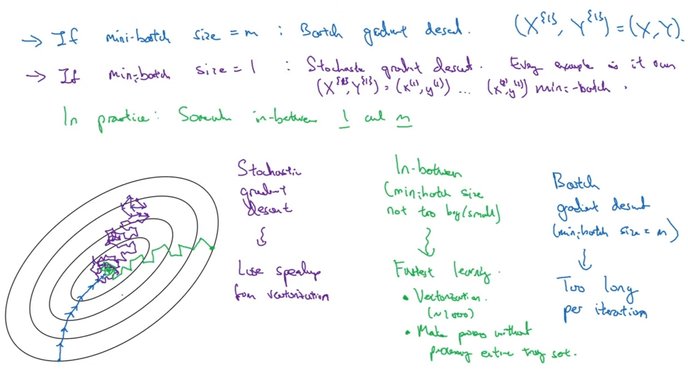 → If mini-batch size = m : Batch gradient descent. (X^{1}, Y^{1}) = (X, Y).
→ If mini-batch size = 1 : Stochastic gradient descent. Every example is it own
(X^{1}, Y^{1}) = (x^(1), y^(1)) ... mini-batch.
In practice: Somewhere in-between 1 and m
Stochastic
gradient
descent
Lose speedup
from vectorization
In-between
(mini-batch size
not too big/small)
Fastest learning.
• Vectorization.
(~1000)
• Make progress without
processing entire training set.
Batch
gradient descent
(mini-batch size = m)
Too long
per iteration